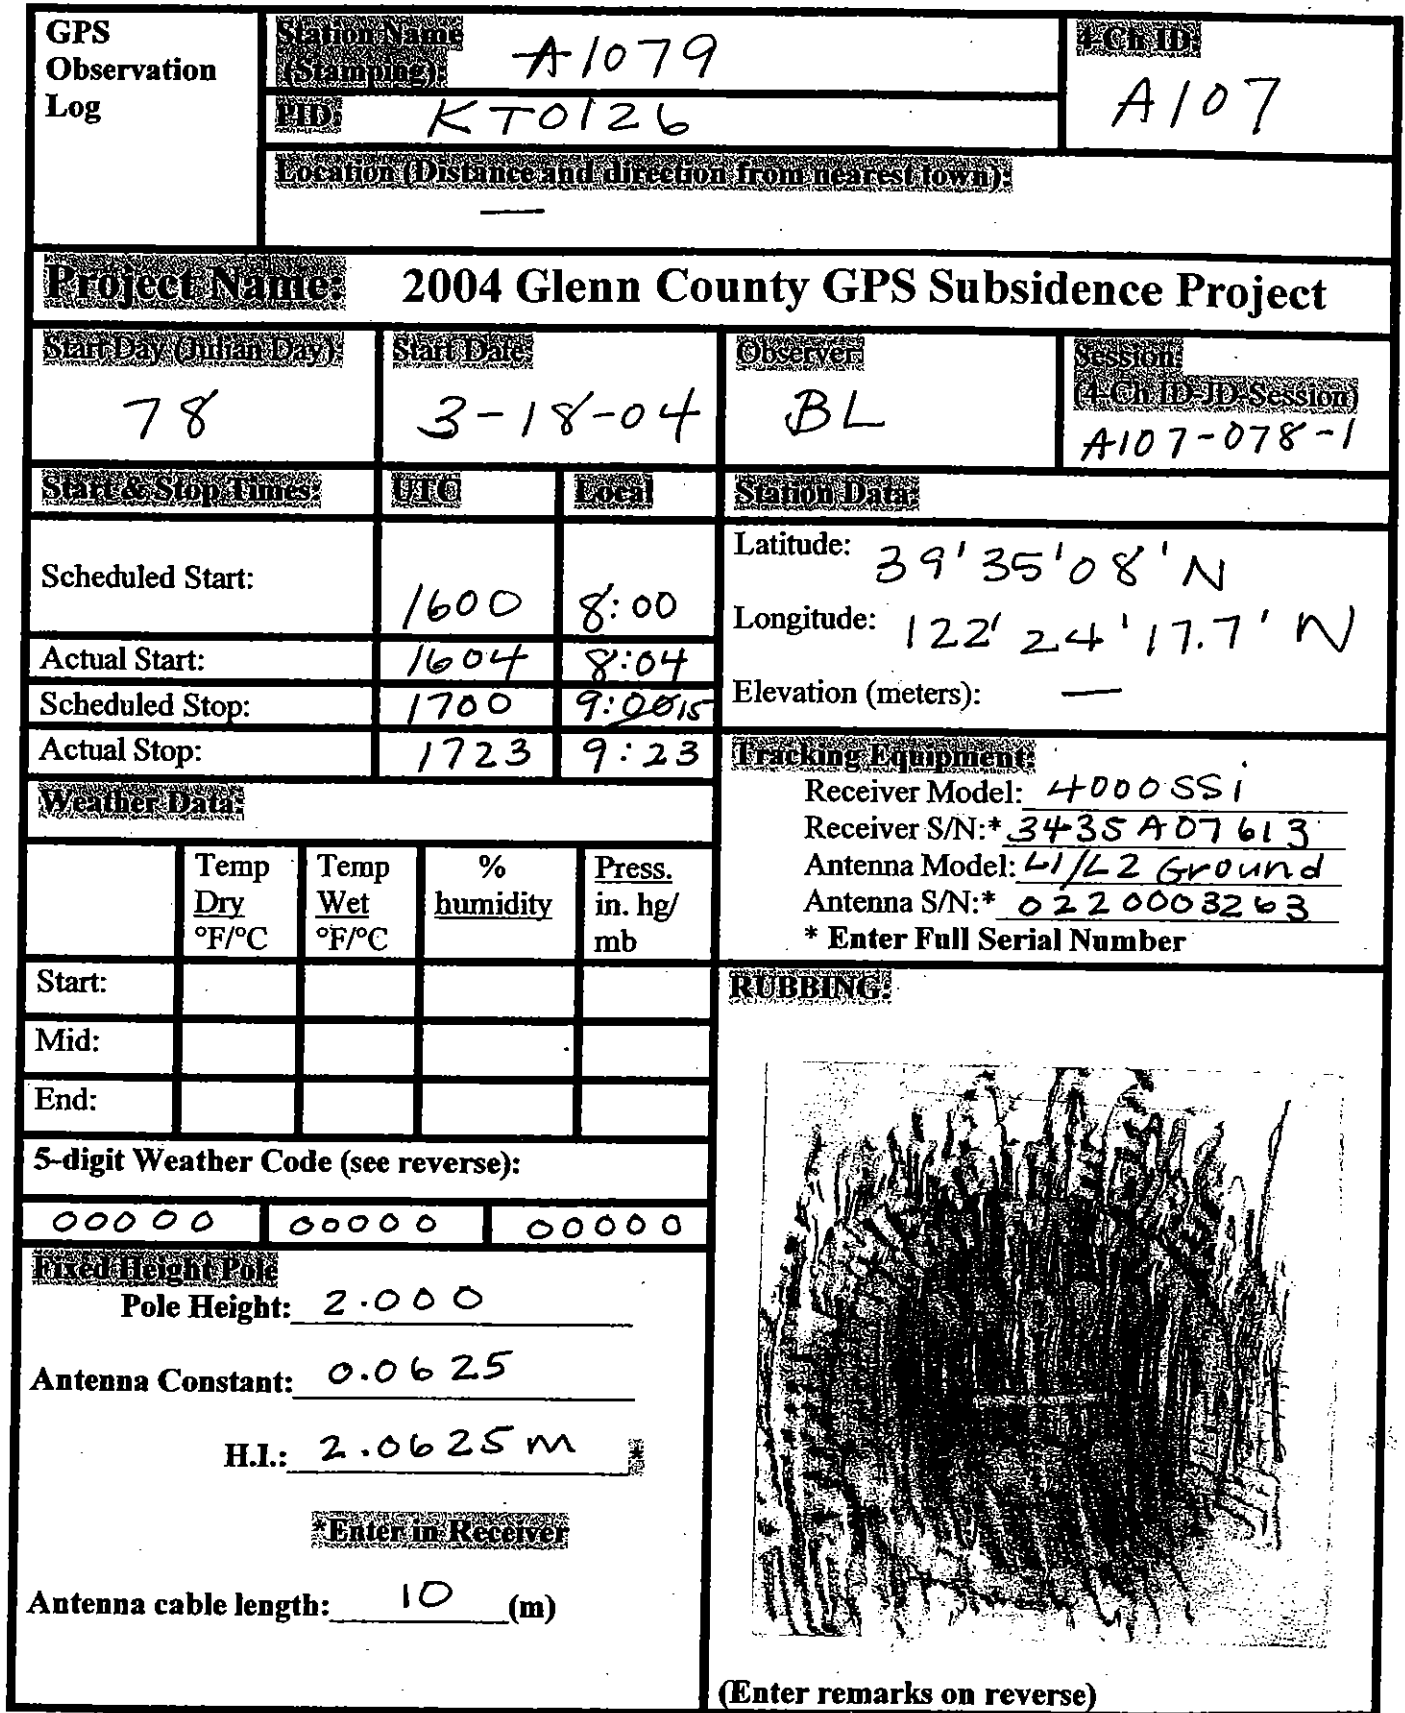 GPS
Observation
Log
Station Name
(Stamping):
A1079
PID: KT0126
4-Ch ID:
A107
Location (Distance and direction from nearest town):
—
Project Name: 2004 Glenn County GPS Subsidence Project
Start Day (Julian Day):
78
Start Date:
3-18-04
Observer:
BL
Session:
(4-Ch ID-JD-Session)
A107-078-1
Start & Stop Times: UTC Local
Scheduled Start: 1600 8:00
Actual Start: 1604 8:04
Scheduled Stop: 1700 9:0015
Actual Stop: 1723 9:23
Station Data:
Latitude: 39'35'08'N
Longitude: 122'24'17.7'N
Elevation (meters): —
Tracking Equipment:
Receiver Model: 4000SSi
Receiver S/N:* 3435A07613
Antenna Model: L1/L2 Ground
Antenna S/N:* 0220003263
* Enter Full Serial Number
Weather Data:
Temp Temp % Press.
Dry Wet humidity in. hg/
°F/°C °F/°C mb
Start:
Mid:
End:
5-digit Weather Code (see reverse):
00000 00000 00000
Fixed Height Pole
Pole Height: 2.000
Antenna Constant: 0.0625
H.I.: 2.0625m *
*Enter in Receiver
Antenna cable length: 10 (m)
RUBBING:
(Enter remarks on reverse)